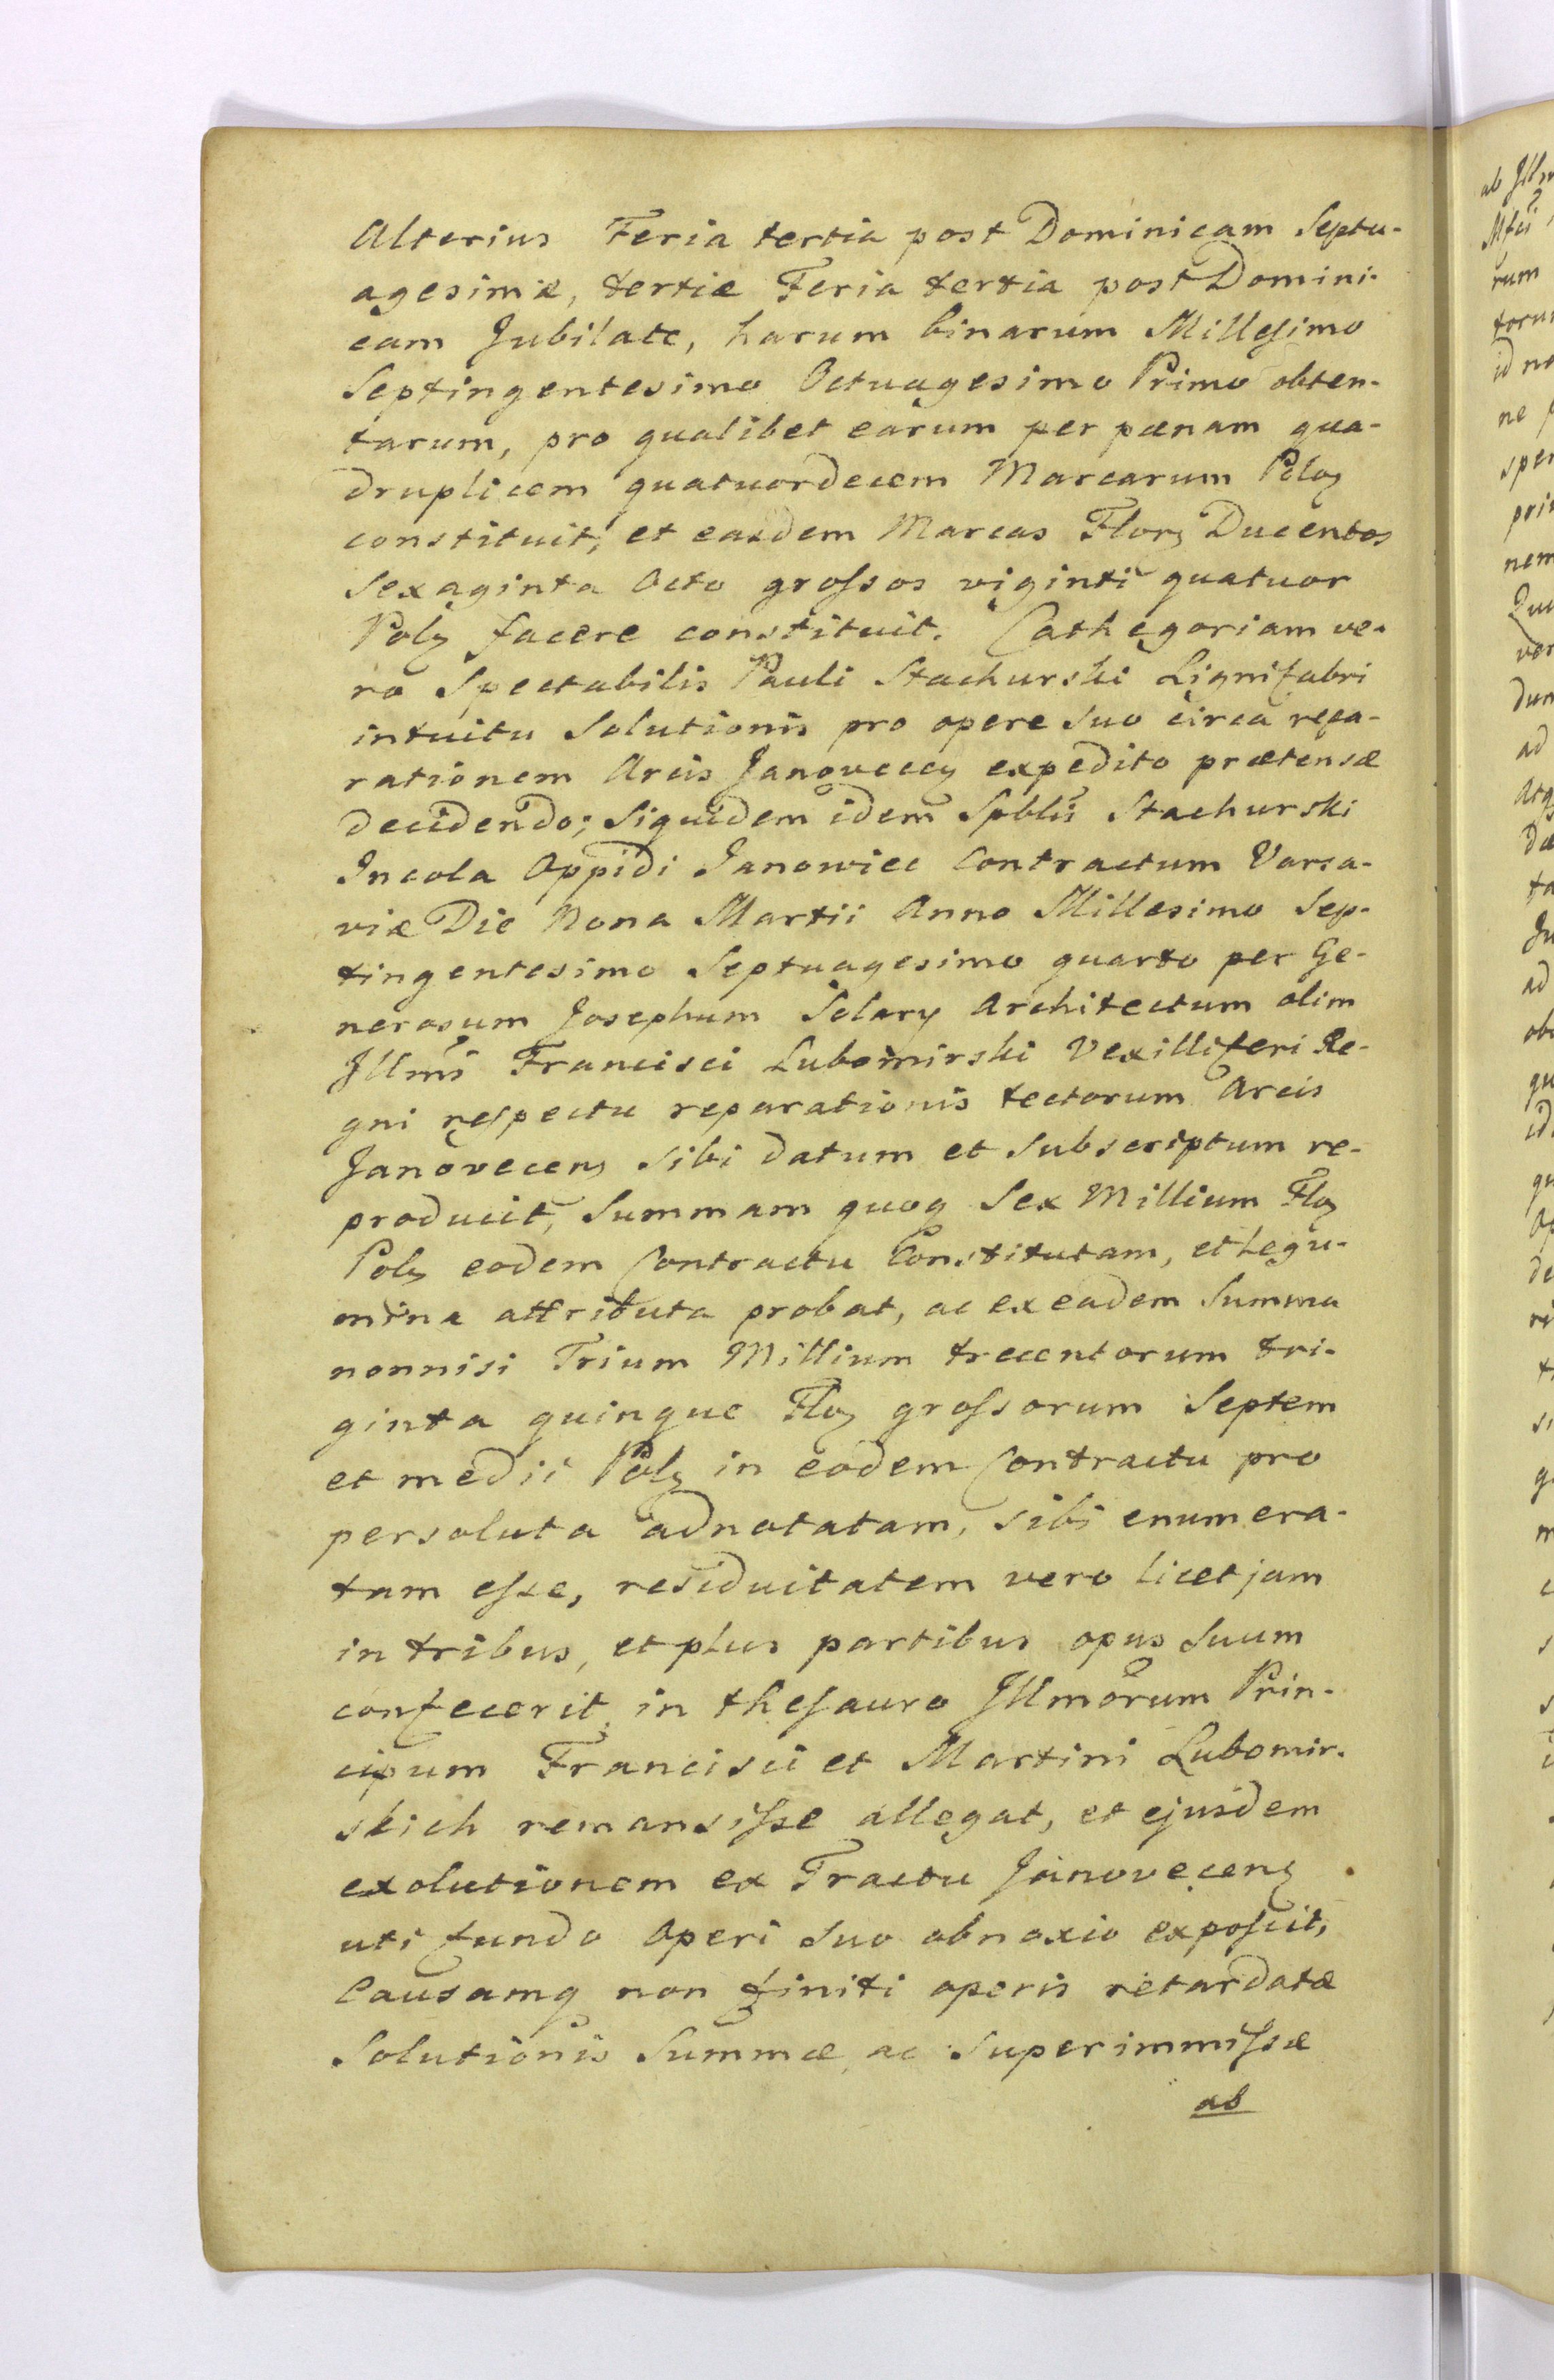 Alterius Feria tertia post Dominicam Septu-
agesimæ, tertiæ Feria tertia post Domini-
cam Jubilate, harum binarum Millesimo
Septingentesimo Octuagesimo Primo obten-
tarum, pro qualibet earum per pœnam qua-
druplicem quatuordecem Marcarum Polo
constituit, et easdem Marcas Flor Ducentos
Sexaginta Octo grossos viginti quatuor
Pol facere constituit. Cathegoriam ve-
ro Spectabilis Pauli Stachurski Lignifabri
intuitu Solutionis pro opere suo circa repa-
rationem Arcis Janovecen expedito prætensæ
decidendo; Siquidem idem Spblis Stachurski
Incola Oppidi Janowiec Contractum Varsa-
viæ Die Nona Martii Anno Millesimo Sep-
tingentesimo Septuagesimo quarto per Ge-
nerosum Josephum Solary Architectum olim
Illmi Francisci Lubomirski Vexilliferi Re-
gni respectu reparationis tectorum Arcis
Janovecens sibi datum et subscriptum re-
producit, Summam quoq Sex Millium Flo
Pol eodem Contractu Constitutam, et Legu-
mina attributa probat, ac ex eadem Summa
nonnisi Trium Millium trecentorum tri-
ginta quinque Flo grossorum Septem
et medii Pol in eodem Contractu pro
persoluta adnotatam, sibi enumera-
tam esse, residuitatem vero licet jam
in tribus, et plus partibus opus Suum
confecerit, in thesauro Illmorum Prin-
cipum Francisci et Martini Lubomir-
skich remansisse allegat, et ejusdem
exolutionem ex Tractu Janovecens
uti fundo Operi Suo obnoxio exposcit,
Causamq non finiti operis retardatæ
Solutionis Summæ, ac Superimmissæ
ab